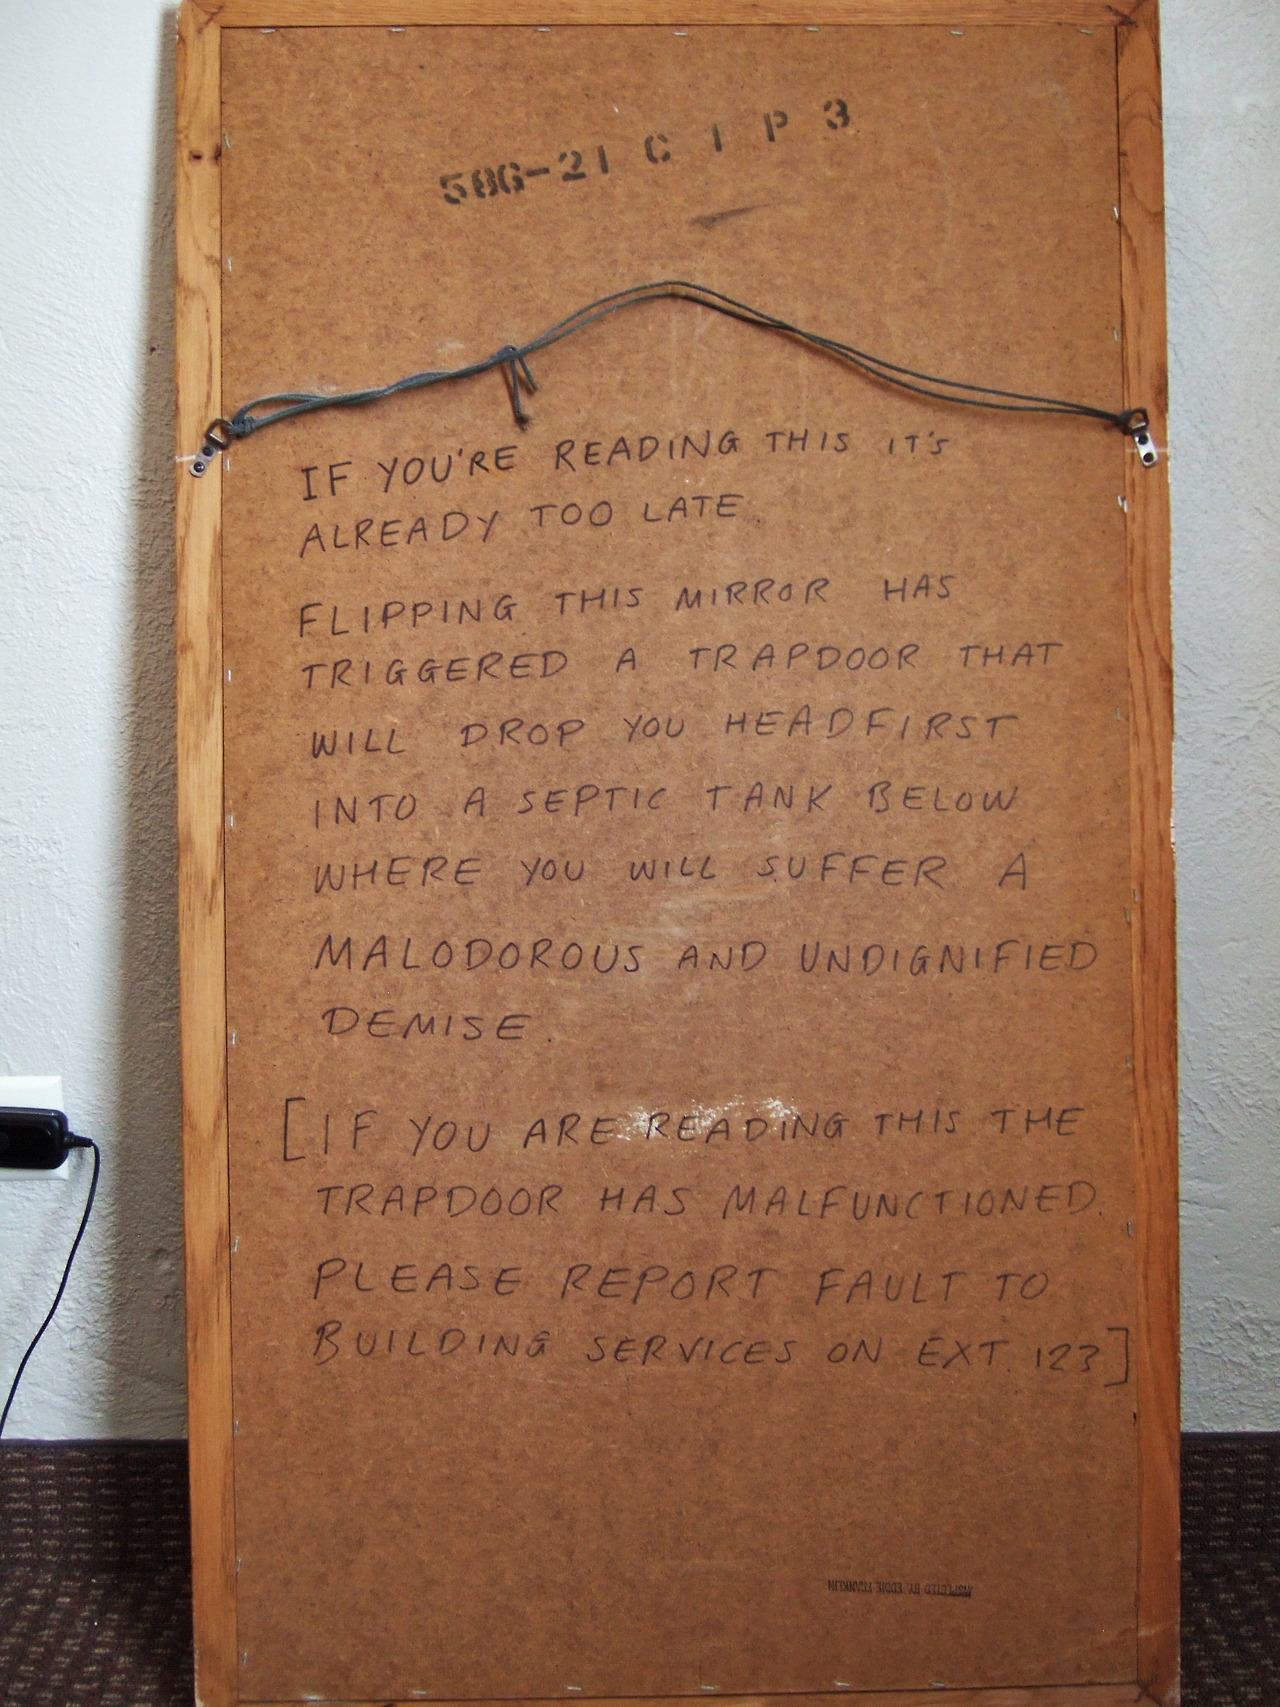 586-21 C 1 P 3
IF YOU'RE READING THIS IT'S
ALREADY TOO LATE.
FLIPPING THIS MIRROR HAS
TRIGGERED A TRAPDOOR THAT
WILL DROP YOU HEADFIRST
INTO A SEPTIC TANK BELOW
WHERE YOU WILL SUFFER A
MALODOROUS AND UNDIGNIFIED
DEMISE.
[IF YOU ARE READING THIS THE
TRAPDOOR HAS MALFUNCTIONED.
PLEASE REPORT FAULT TO
BUILDING SERVICES ON EXT. 123]
INSPECTED BY, EDDIE FRANKLIN